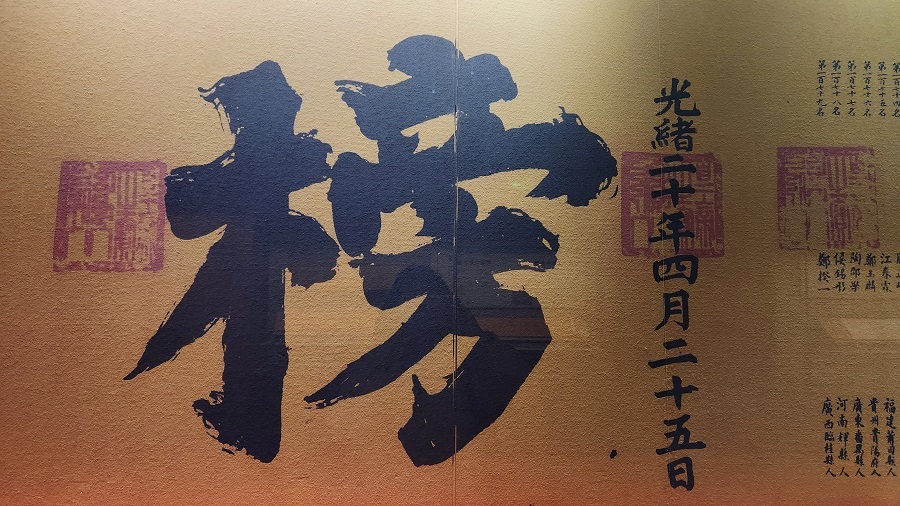 第一百七十五名 江春霖 福建莆田縣人
第一百七十六名 鄭玉麟 貴州貴陽府人
第一百七十七名 陶邵學 廣東番禺縣人
第一百七十八名 侯錫彤 河南輝縣人
第一百七十九名 鄭揆一 廣西臨桂縣人
光緒二十年四月二十五日
榜